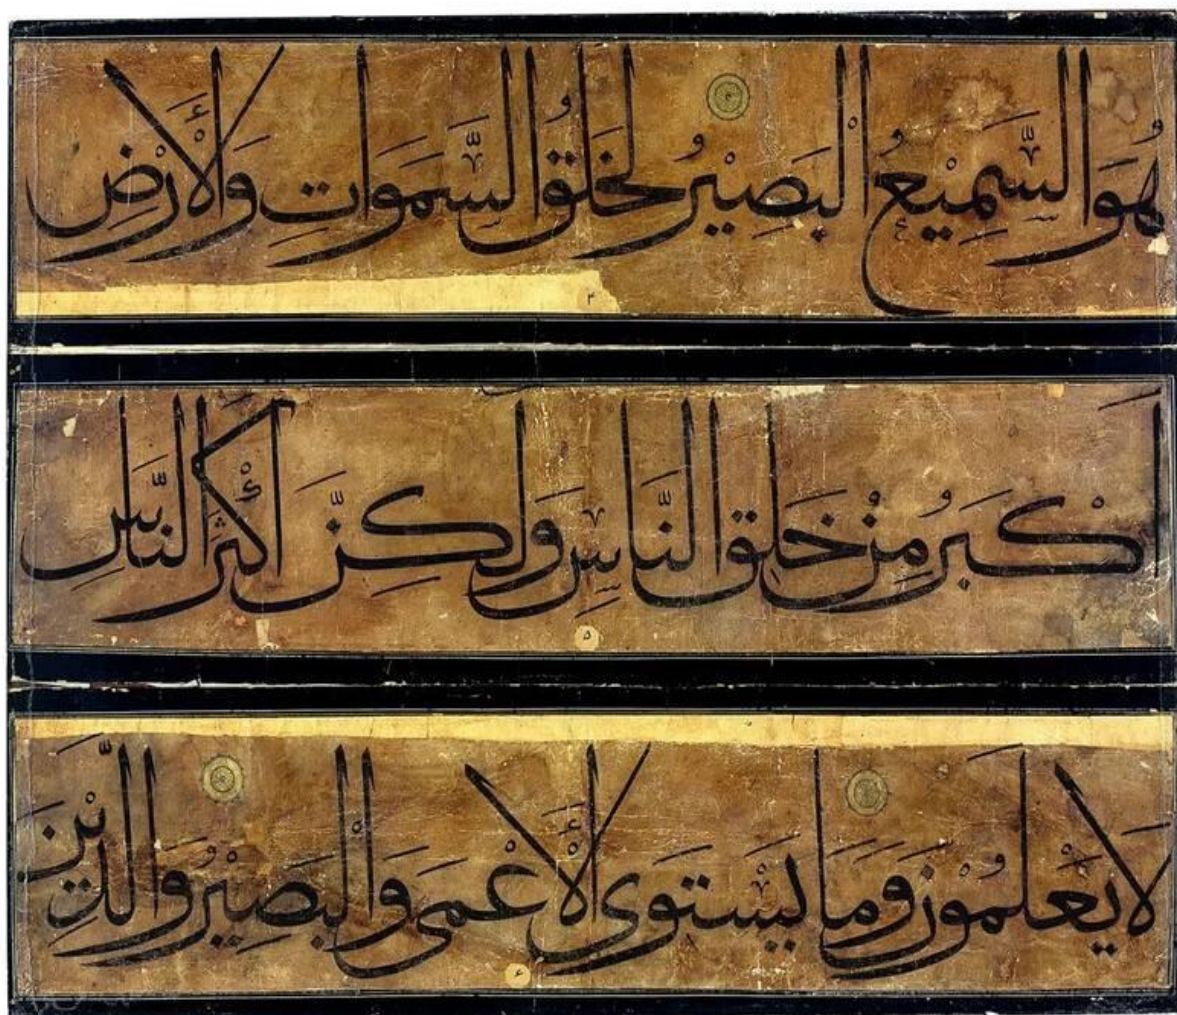 هُوَ السَّمِيْعُ الْبَصِيْرُ لَخَلْقُ السَّمَوَاتِ وَالْأَرْضِ
٤
اَكْبَرُ مِنْ خَلْقِ النَّاسِ وَلَكِنَّ اَكْثَرَ النَّاسِ
٥
لَا يَعْلَمُوْنَ وَمَا يَسْتَوِى الْأَعْمَى وَالْبَصِيْرُ وَالَّذِيْنَ